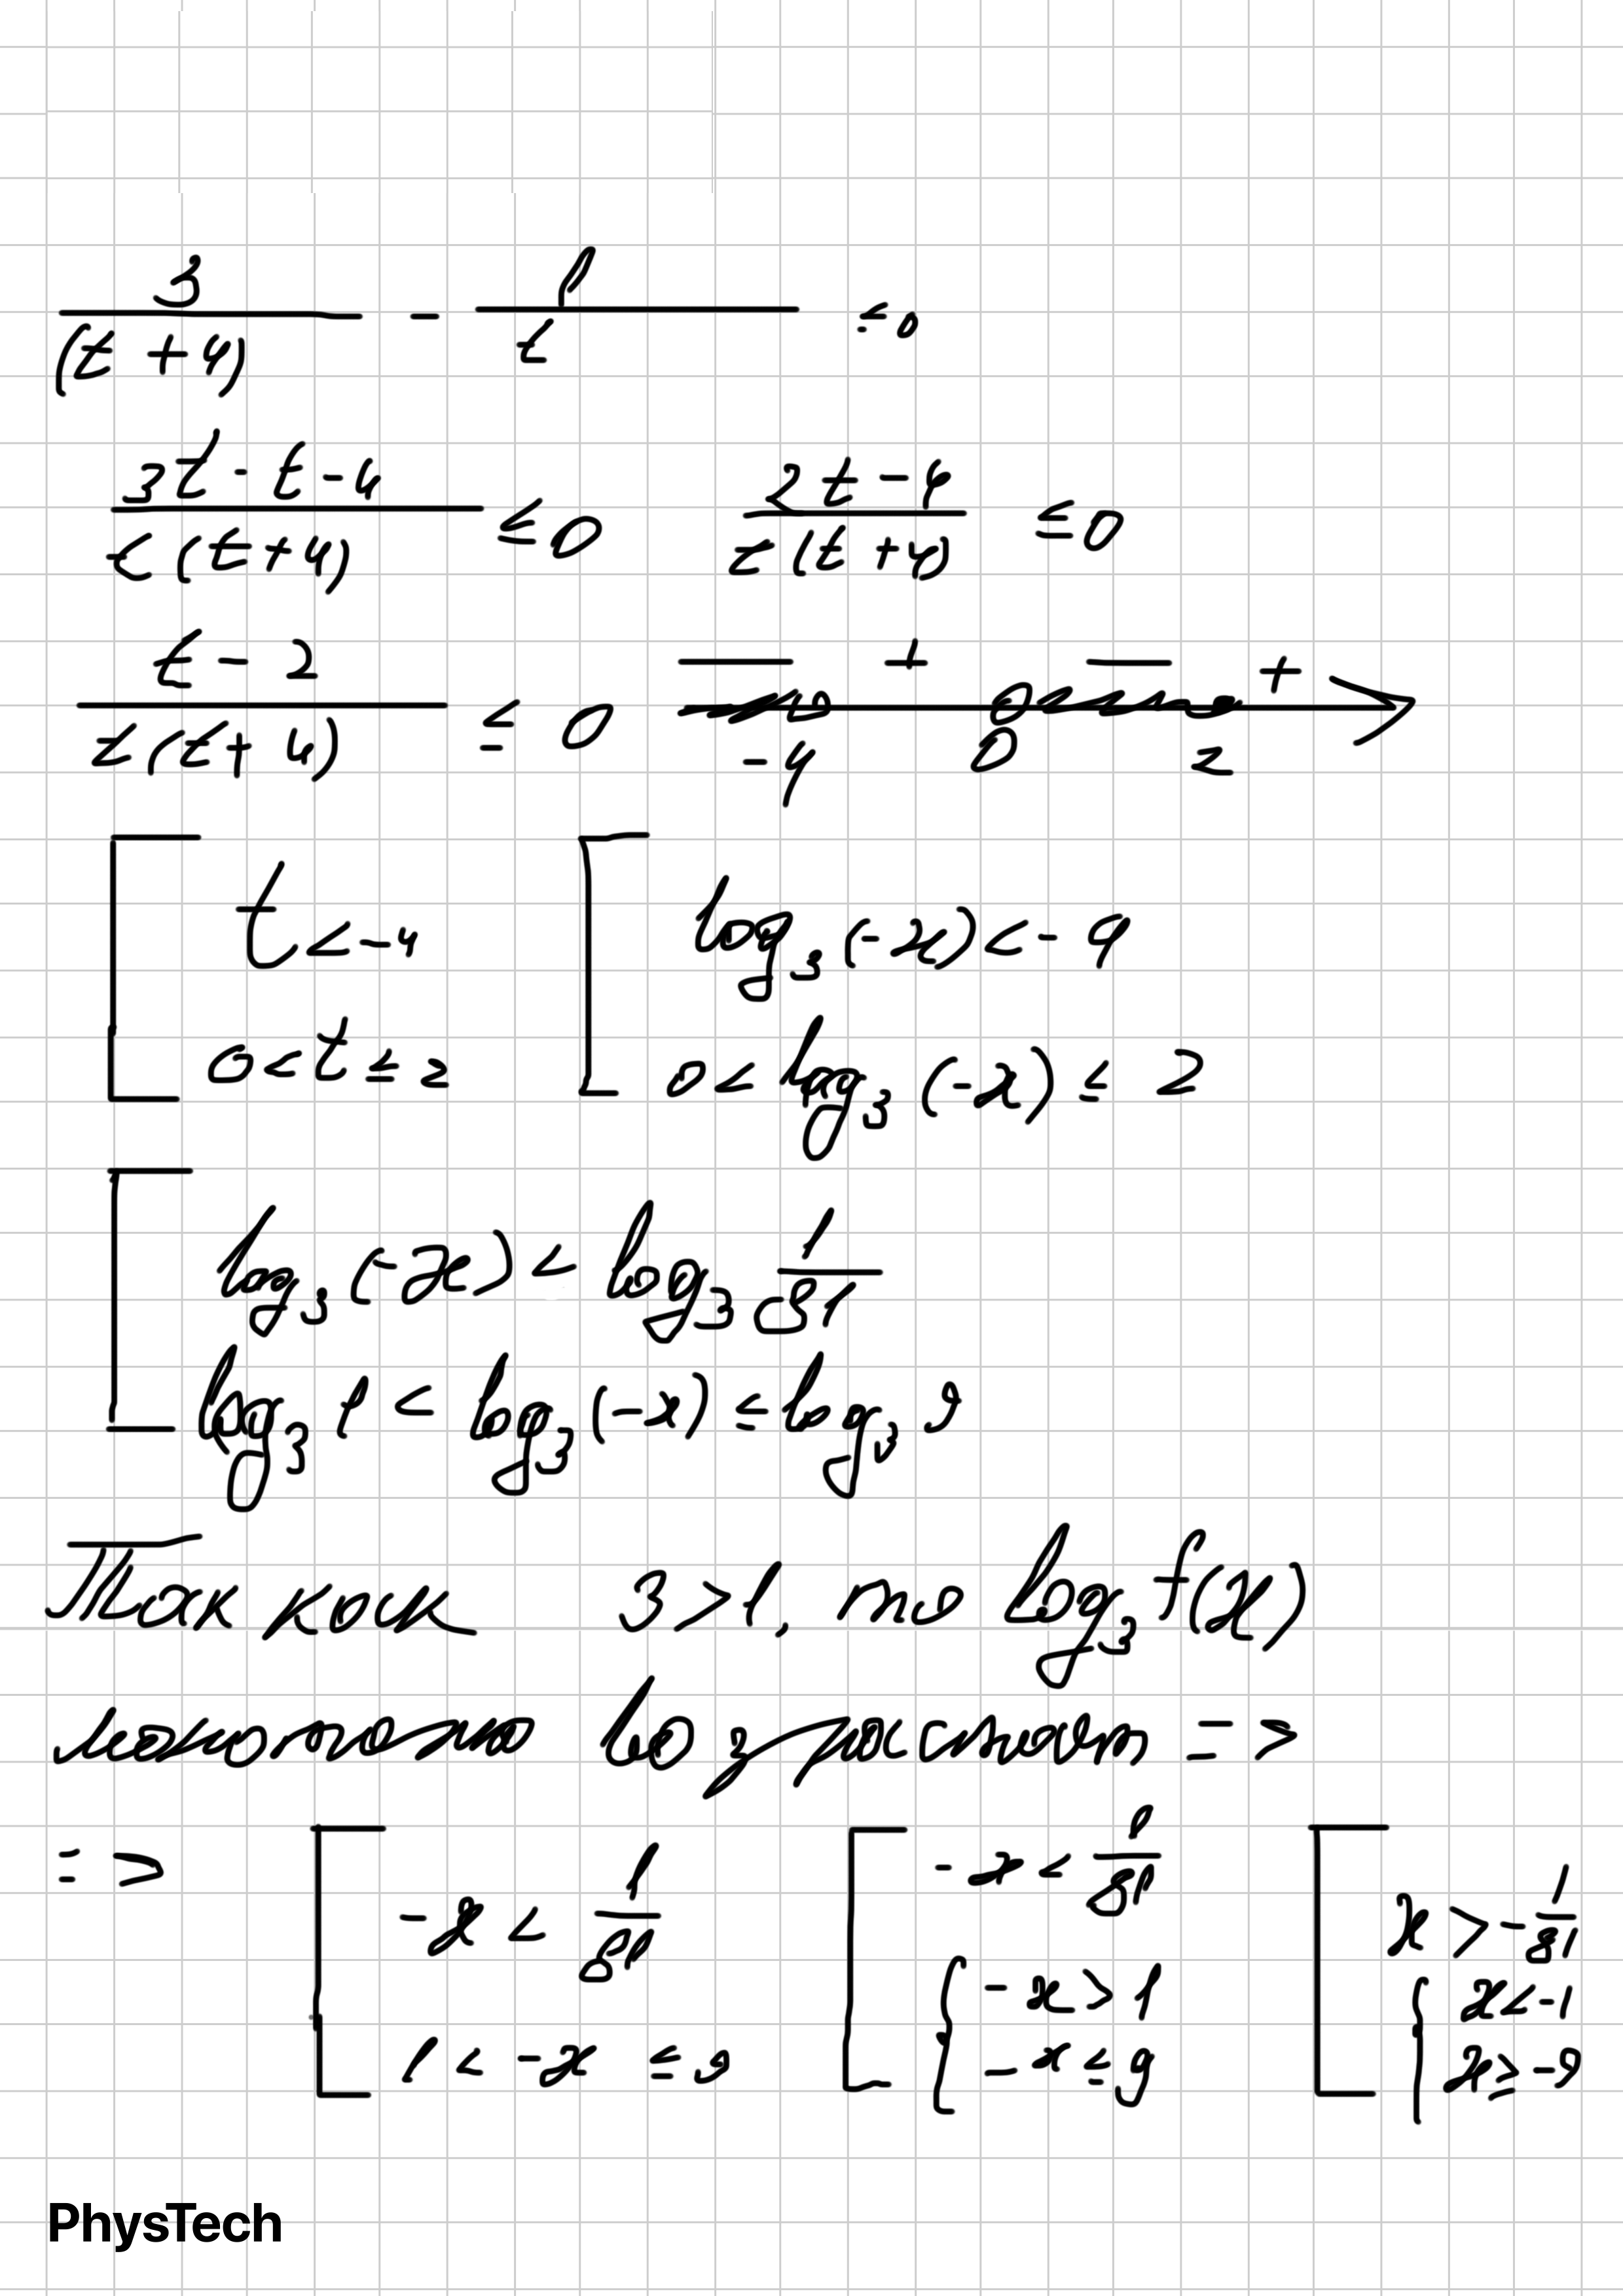 3/(t + 4) - 1/t ≤ 0
(3t - t - 4)/(t(t+4)) ≤ 0    (2t - 4)/(t(t + 4)) ≤ 0
(t - 2)/(t(t + 4)) ≤ 0    − + − +
-4 0 2
[ t < -4    [ log₃(-x) < -4
0 < t ≤ 2    0 < log₃(-x) ≤ 2
[ log₃(-x) < log₃ 1/81
log₃ 1 < log₃(-x) ≤ log₃ 9
Так как 3 > 1, то log₃ f(x)
монотонно возрастает =>
=> [ -x < 1/81    [ -x < 1/81    [ x > -1/81
1 < -x ≤ 9    { -x > 1    { x < -1
-x ≤ 9    x ≥ -9
PhysTech